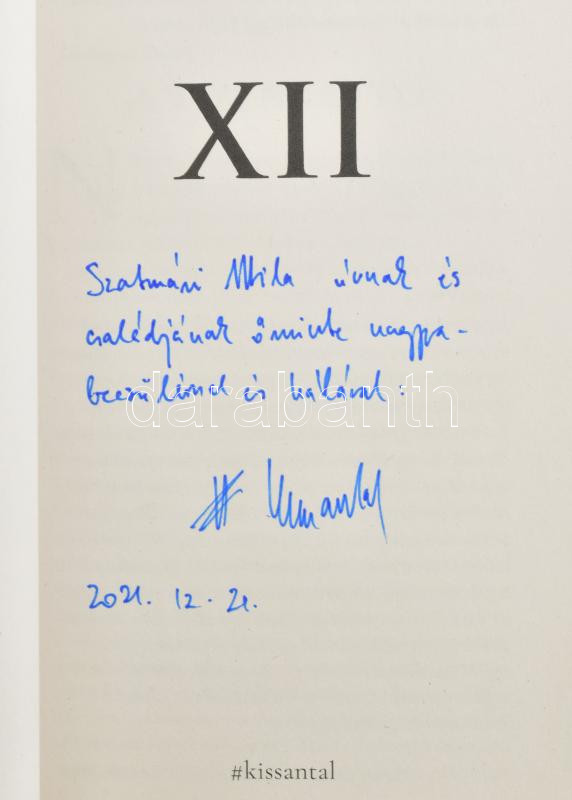 XII
Szatmári Attila úrnak és
családjának őszinte nagyra-
becsüléssel és hálával:
darabanth
# kissantal
2021. 12. 21.
#kissantal